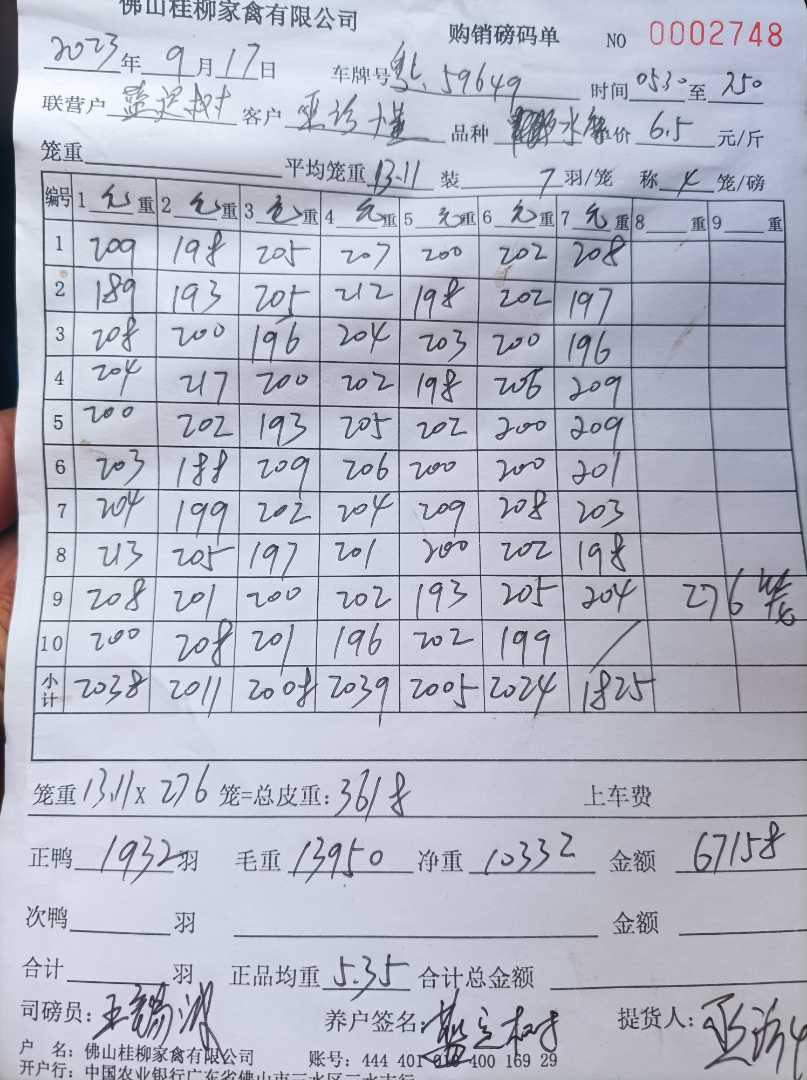 佛山桂柳家禽有限公司
购销磅码单 NO 0002748
2023年9月17日 车牌号 59649 时间0530至750
联营户 客户 品种 水 单价6.5元/斤
笼重 平均笼重13.11 装7羽/笼 称4笼/磅
编号 1元重 2元重 3元重 4元重 5元重 6元重 7元重 8重 9重
1 209 198 205 207 200 202 208
2 189 193 205 212 198 202 197
3 208 200 196 204 203 200 196
4 204 217 200 202 198 206 209
5 200 202 193 205 202 200 209
6 203 188 209 206 200 200 201
7 204 199 202 204 209 208 203
8 213 205 197 201 200 202 198
9 208 201 200 202 193 205 204 276笼
10 200 208 201 196 202 199 /
小计 2038 2011 2008 2039 2005 2024 1825
笼重13.11X276笼=总皮重:3618 上车费
正鸭1932羽 毛重13950 净重10332 金额67158
次鸭 羽 金额
合计 羽 正品均重5.35 合计总金额
司磅员: 养户签名: 提货人:
户 名:佛山桂柳家禽有限公司 账号:444 401 010 400 169 29
开户行:中国农业银行广东省佛山市三水区三水支行